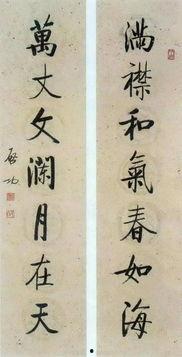 满襟和氣春如海
萬丈文澜月在天
啓功